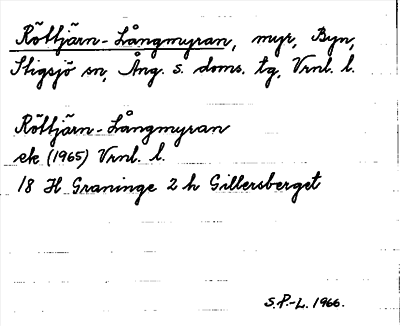 Röttjärn-Långmyran, myr, Byn,
Stigsjö sn, Ång. s. doms. tg, Vrnl. l.
Röttjärn-Långmyran
ek (1965) Vrnl. l.
18 H Graninge 2 h Gillersberget
S.P.-L. 1966.